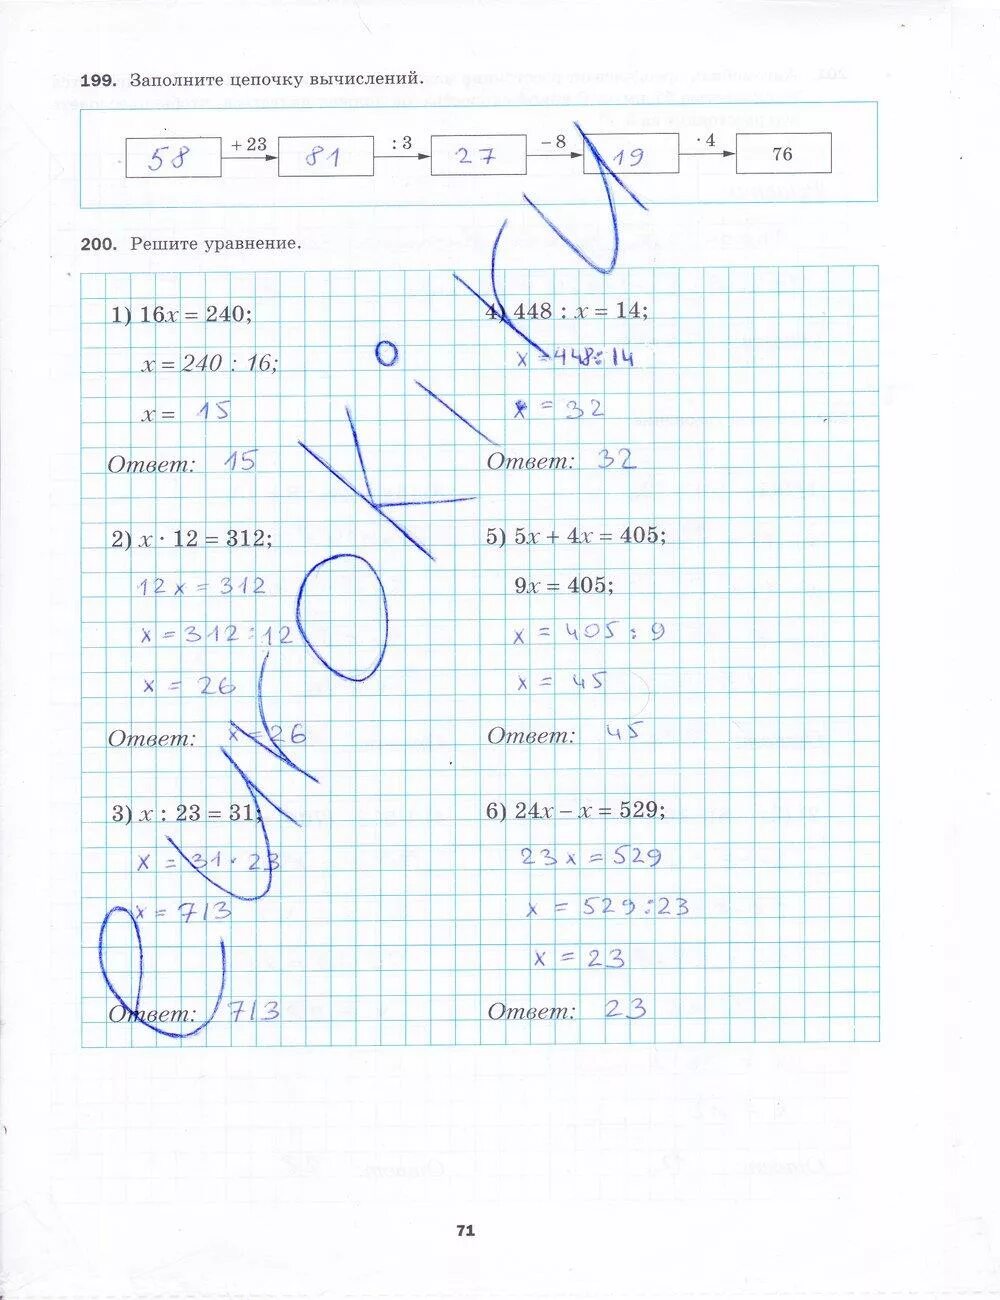 199. Заполните цепочку вычислений.
58 +23 81 : 3 27 – 8 19 · 4 76
200. Решите уравнение.
1) 16x = 240;
x = 240 : 16;
x = 15
Ответ: 15
2) x · 12 = 312;
12x = 312
x = 312 : 12
x = 26
Ответ: x = 26
3) x : 23 = 31;
x = 31 · 23
x = 713
Ответ: 713
4) 448 : x = 14;
x = 448 : 14
x = 32
Ответ: 32
5) 5x + 4x = 405;
9x = 405;
x = 405 : 9
x = 45
Ответ: 45
6) 24x – x = 529;
23x = 529
x = 529 : 23
x = 23
Ответ: 23
71